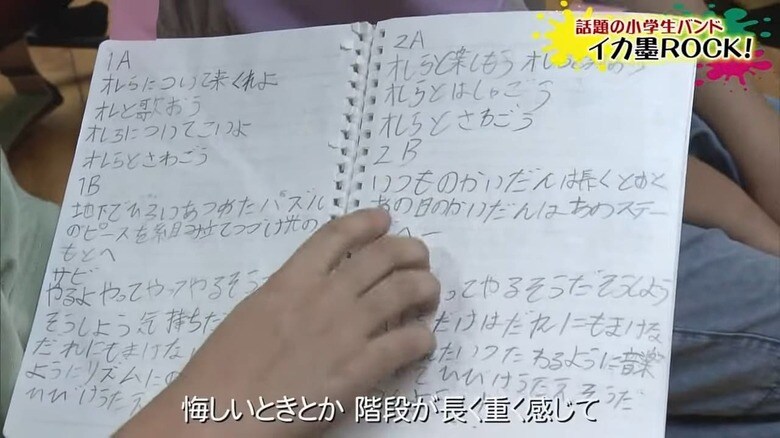 話題の小学生バンド
イカ墨ROCK!
1A
オレらについて来くれよ
オレと歌おう
オレらについてこいよ
オレらとさわごう
1B
地下でひろいあつめたパズル
のピースを組み
つづけ光の
もとへ
サビ
やるよやってやってやるそう
そうしよう気持ちだ
だれにもまけない
ようにリズムにの
ひびけうたえ
2A
オレらと楽しもう オレ
オレらとはしゃごう
オレらとさわごう
2B
いつものかいだんは長く
あの日のかいだんは ステー
へー
ってやるそうだそうしよう
だけはだれにもまけな
わるように音楽
ひびけうたえそうだ
悔しいときとか 階段が長く重く感じて